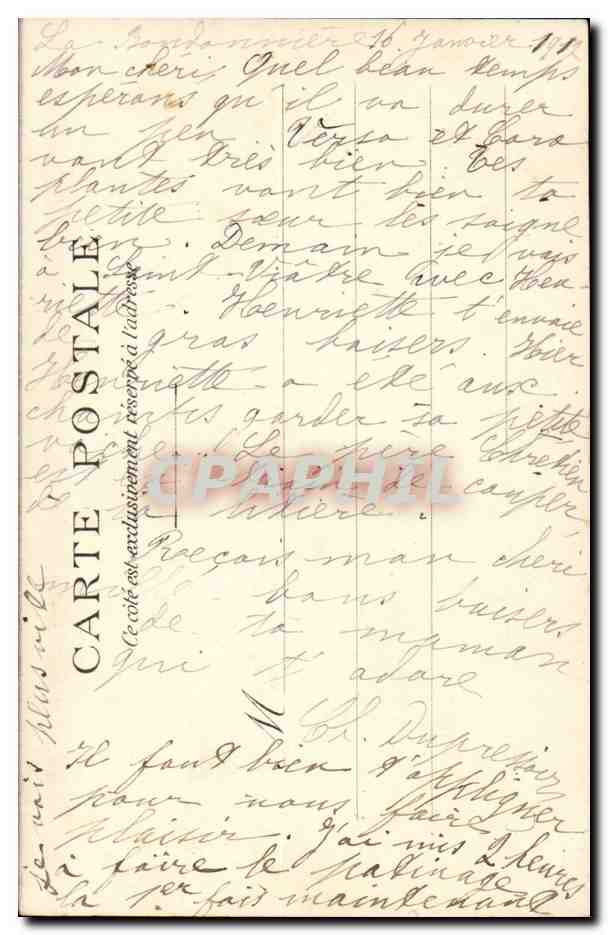 La Rondonnière 16 Janvier 1912
Mon chéri, Quel beau temps
esperons qu'il va durer
un peu. et
vont très bien. Tes
plantes vont bien ta
petite sœur les soigne
bien. Demain je vais
à Saint-Viâtre avec Hen-
riette. Henriette t'envoie
de gros baisers. Hier
Henriette a été aux
champs garder sa petite
vache. Le père Chrétien
est en train de couper
de la
Reçois mon cheri
mille bons baisers
de ta maman
qui t'adore
Ch. Dupressoir
Il faut bien t'appliquer
pour nous faire
plaisir. J'ai mis 2 heures
à faire le patinage
la 1er fois maintenant
je vais plus vite
CARTE POSTALE
Ce côté est exclusivement réservé à l'adresse
M
CPAPHIL